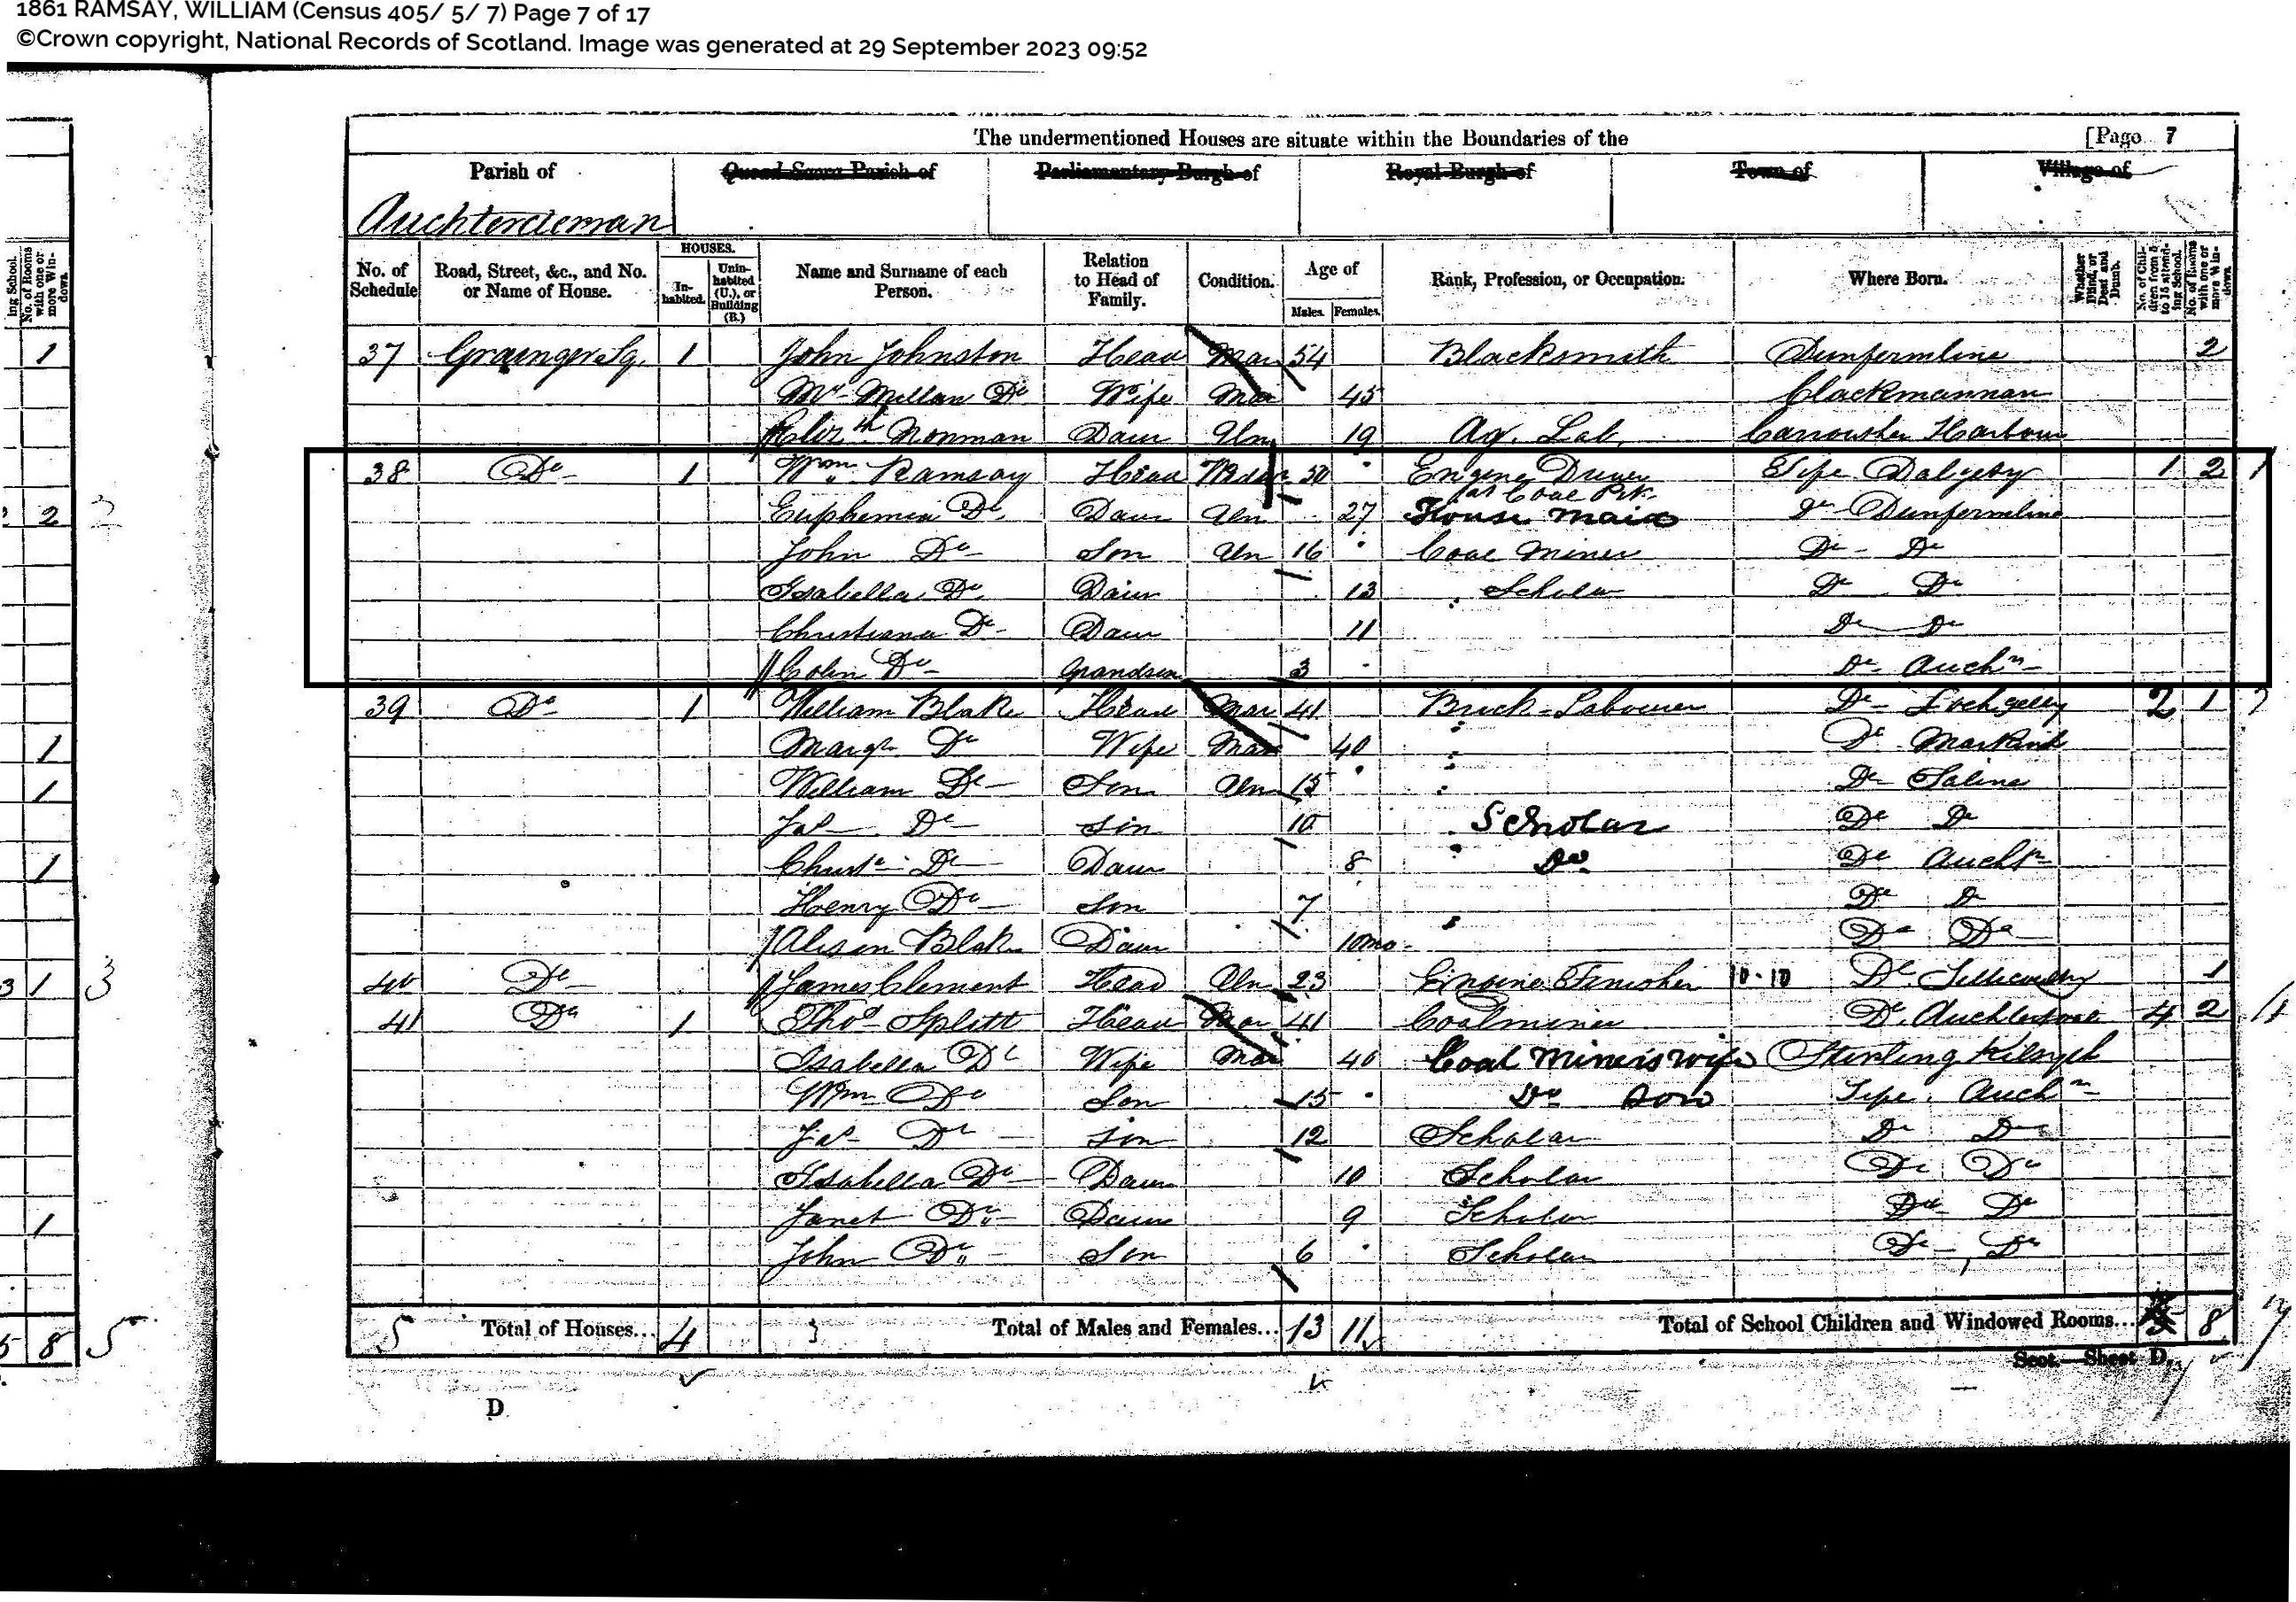 1861 RAMSAY, WILLIAM (Census 405/ 5/ 7) Page 7 of 17
©Crown copyright, National Records of Scotland. Image was generated at 29 September 2023 09:52
The undermentioned Houses are situate within the Boundaries of the [Page 7
Parish of Quoad Sacra Parish of Parliamentary Burgh of Royal Burgh of Town of Village of
Auchterderran
No. of Schedule Road, Street, &c., and No. or Name of House. HOUSES. Inhabited. Uninhabited (U.), or Building (B.) Name and Surname of each Person. Relation to Head of Family. Condition. Age of Males. Females. Rank, Profession, or Occupation. Where Born. Whether Blind, or Deaf and Dumb. No. of Children from 5 to 15 attending School. No. of Rooms with one or more Windows.
37 Grainger Sq. 1 John Johnston Head Mar 54 Blacksmith Dunfermline 2
Do Wife Mar 45 Clackmannan
Norman Daur Un 19 Ag. Lab. Harbour
38 Do 1 Wm Ramsay Head 50 Engine Driver Fife Dalgety 1 2 1
at Coal Pit
Euphemia Do Daur Un 27 House maid Do Dunfermline
John Do Son Un 16 Coal Miner Do Do
Isabella Do Daur 13 Scholar Do Do
Christiana Do Daur 11 Do Do
Colin Do Grandson 3 Do Auchn
39 Do 1 William Blake Head Mar 41 Brick-Labourer Do Lochgelly 2 1 2
Margt Do Wife Mar 40 Do
William Do Son Un 15 Do Saline
Jas Do Son 10 Scholar Do Do
Do Daur 8 Do Do Auchn
Henry Do Son 7 Do Do
Alison Blake Daur 10mo Do Do
40 Do James Clement Head Un 23 Engine Finisher 10·10 Do 1
41 Do 1 Thos Splitt Head Mar 41 Coalminer Do 4 2 4
Isabella Do Wife Mar 40 Coal Miners wife Stirling Kilsyth
Wm Do Son 15 Do Son Fife Auchn
Jas Do Son 12 Scholar Do Do
Isabella Do Daur 10 Scholar Do Do
Janet Do Daur 9 Scholar Do Do
John Do Son 6 Scholar Do Do
5 Total of Houses... 4 Total of Males and Females... 13 11 Total of School Children and Windowed Rooms... 8
Scot.—Sheet D.
D